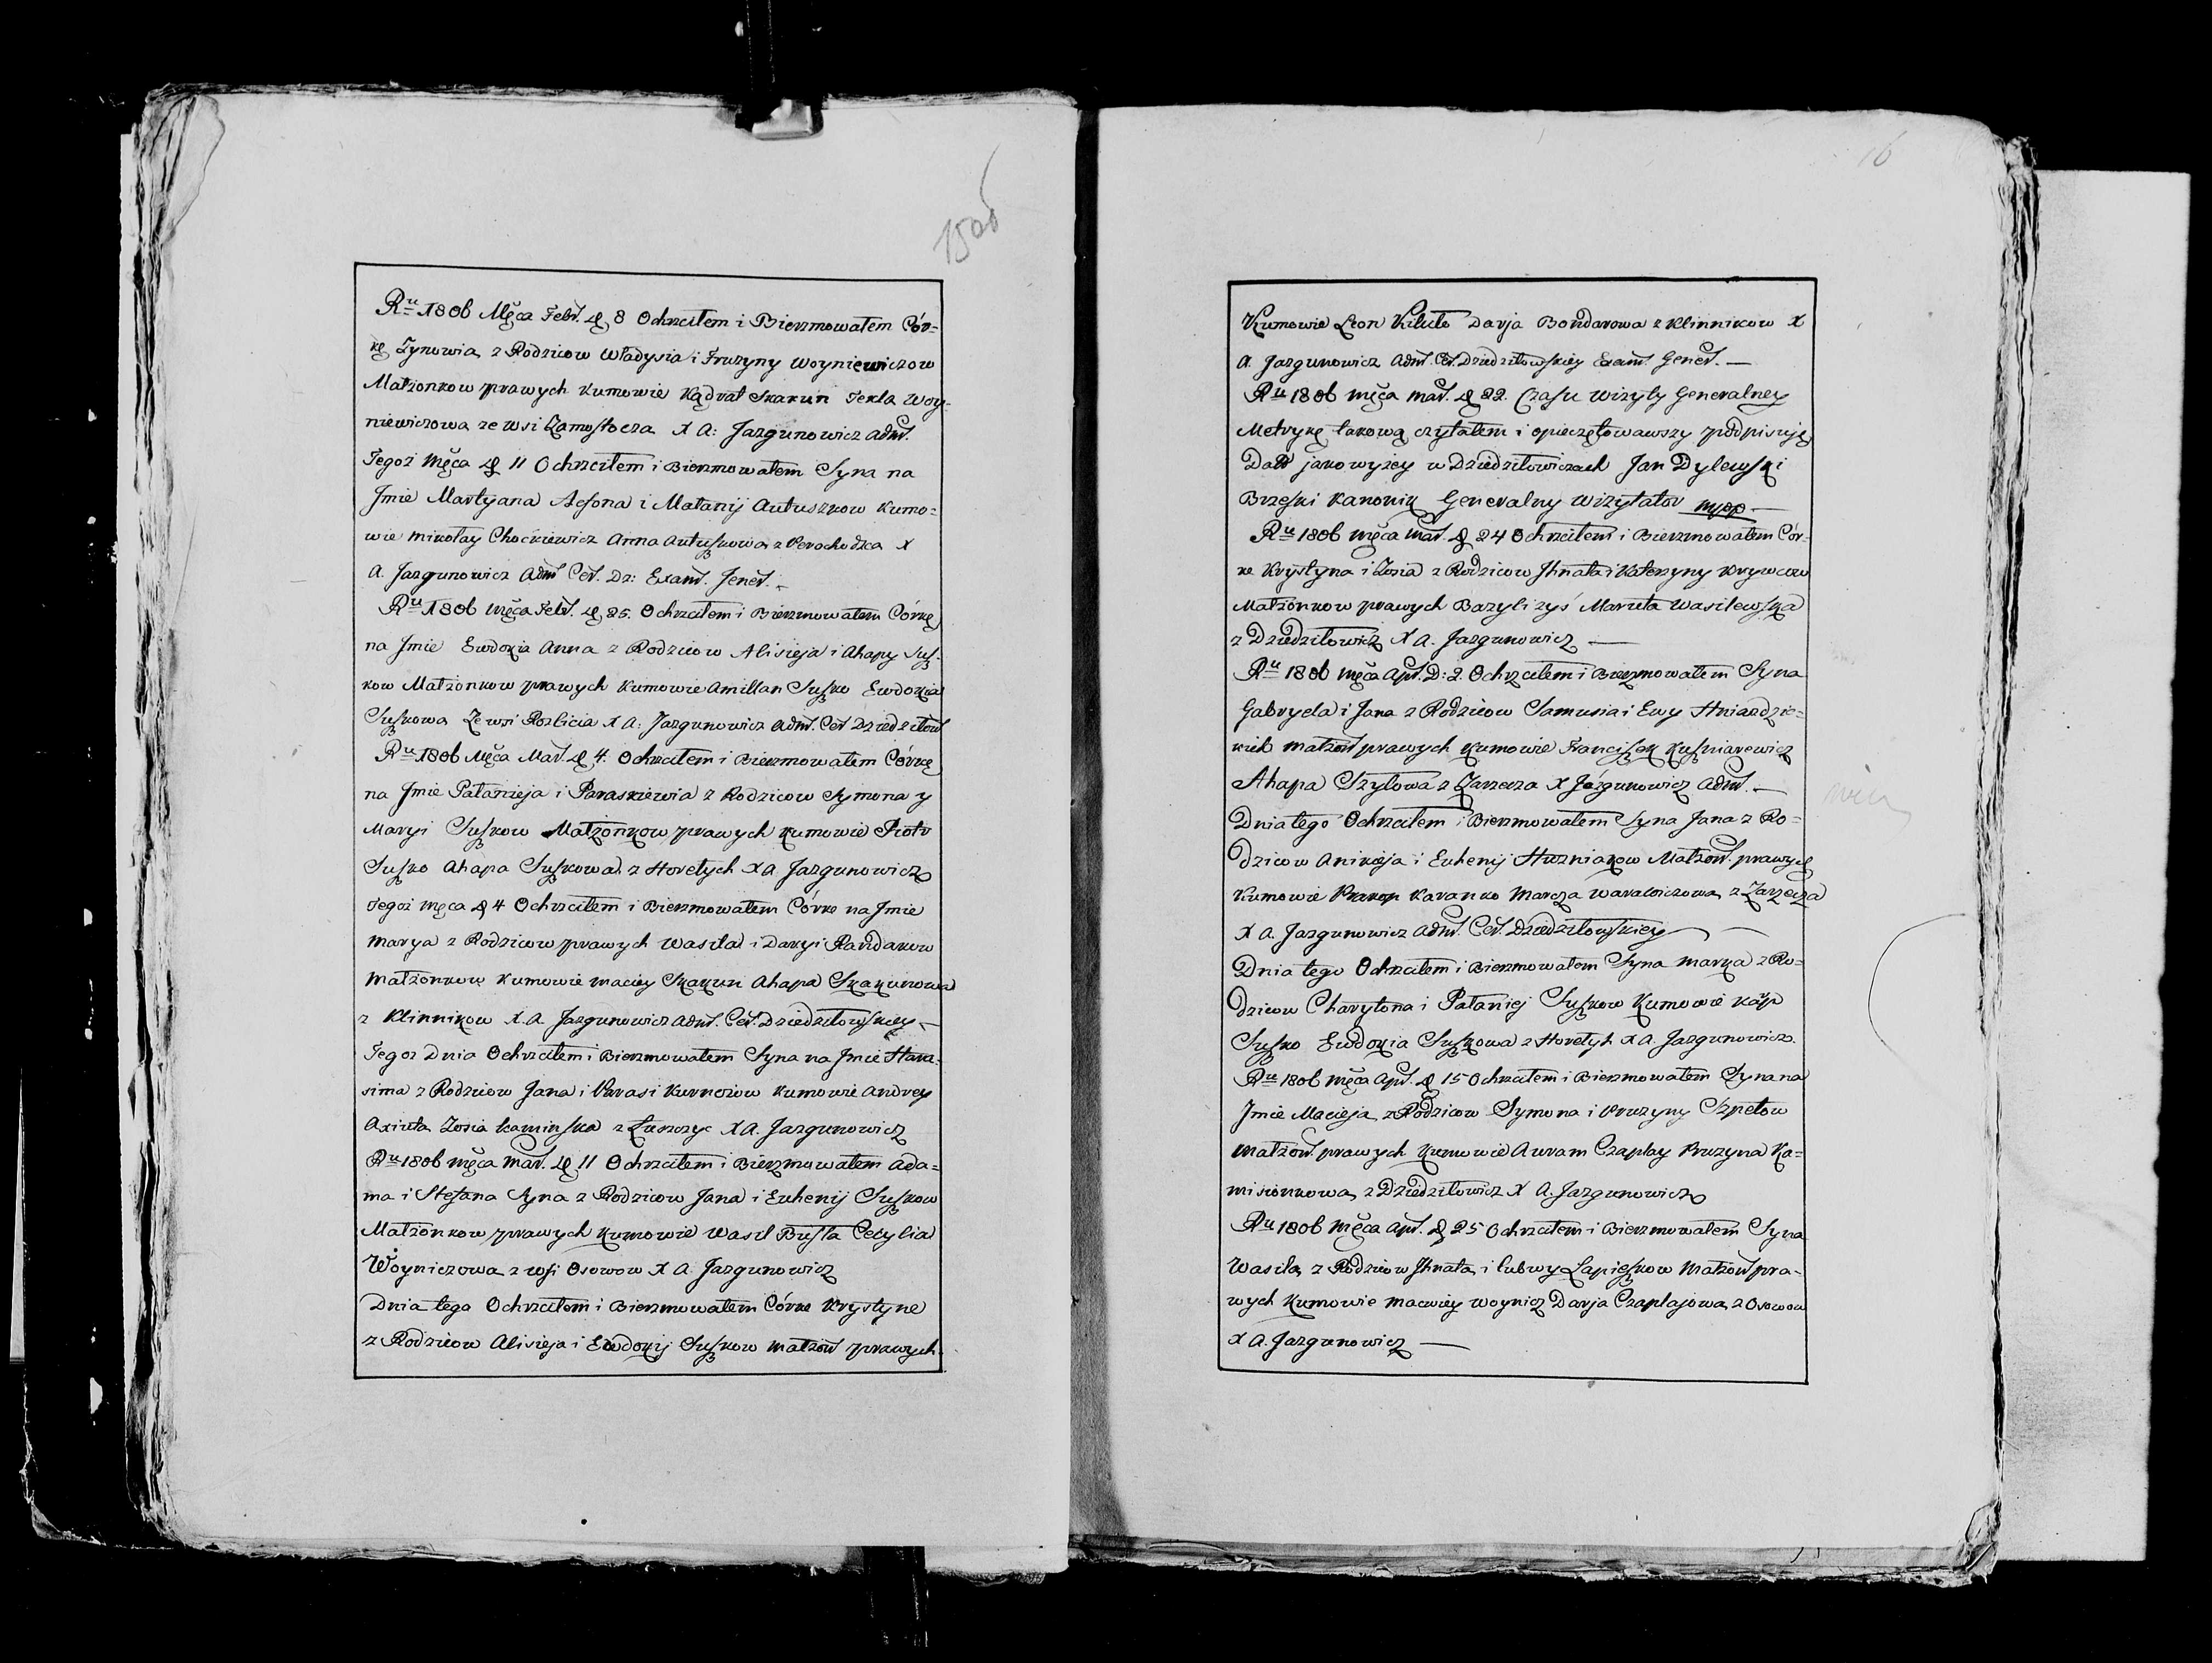 15об
Ru 1806 Męca Febr. D 8 Ochrzciłem i Bierzmowałem Cór=
kę Zynowia z Rodzicow Władysia i Fruzyny Woyniewiczow
Małżonkow prawych Kumowie Kądrat Skakun Tekla Woy-
niewiczowa ze wsi Zamostocza X A: Jazgunowicz adm.
Tegoż Męca D 11 Ochrzciłem i Bierzmowałem Syna na
Jmie Martyana Aesona i Małanij Autuszkow Kumo=
wie Mikołay Choćkiewicz Anna Autuszkowa z Perochodzca X
A. Jazgunowicz Adm Cer. Dz: Exam. Jener. -
Ru 1806 Męca Febr. D 25. Ochrzciłem i Bierzmowałem Córkę
na Jmie Ewdokia Anna z Rodzicow Alisieja i Ahapy Susz-
kow Małżonkow prawych Kumowie Amillan Suszko Ewdokia
Suszkowa Ze wsi Rozlicia X A: Jazgunowicz Adm. Cer Dziedziłow
Ru 1806 Męca Mar. D 4. Ochrzciłem i Bierzmowałem Córkę
na Jmie Pałanieja i Paraskiewia z Rodzicow Symona y
Maryi Suszkow Małżonkow prawych Kumowie Piotr
Suszko Ahapa Suszkowa z Horełych X A. Jazgunowicz
Tegoż Męca D 4 Ochrzciłem i Bierzmowałem Córke na Jmie
Marya z Rodzicow prawych Wasila i Daryi Randarow
Małżonkow Kumowie Maciey Skakun Ahapa Skakunowa
z Klinnikow X. A. Jazgunowicz Adm. Cer. Dziedziłowskiey -
Tegoz Dnia Ochrzciłem i Bierzmowałem Syna na Jmie Hara-
sima z Rodzicow Jana i Parasi Kurnosow Kumowie Andrey
Axiuta Zosia Kaminska z Łuszczyc X A. Jazgunowicz
Ru 1806 Męca Mar. D 11 Ochrzciłem i Bierzmowałem Ada=
ma i Stefana Syna z Rodzicow Jana i Euhenij Suszkow
Małżonkow prawych Kumowie Wasil Busła Cecylia
Woyniczowa z wsi Osowow X A. Jazgunowicz
Dnia tego Ochrzciłem i Bierzmowałem Córke Krystyne
z Rodzicow Alisieja i Ewdokij Suszkow Małżow prawych.
16
Kumowie Leon Kikiło Darja Bondarowa z Klinnikow X
A. Jazgunowicz Adm. Cer. Dziedziłowskiey Exam. Gener. -
Ru 1806 Męca Mar. D 22. Czasu Wizyty Generalney
Metrykę takową czytałem i opieczętowawszy podpisuję
Dato jako wyżey w Dziedziłowiczach Jan Dylewski
Brzeski Kanonik Generalny Wizytator mpp -
Ru 1806 Męca Mar. D 24 Ochrzciłem i Bierzmowałem Cór-
ke Krystyna i Zosia z Rodzicow Jhnata i Katerzyny Krywcow
Małżonkow prawych Bazyli zyś Maruta Wasilewska
z Dziedziłowicz X A. Jazgunowicz -
Ru 1806 Męca Apr. D: 2 Ochrzciłem i Bierzmowałem Syna
Gabryela i Jana z Rodzicow Samusia i Ewy Hniazdzic=
kich Małżow prawych Kumowie Franciszek Kuszniarewicz
Ahapa Szyłowa z Zarzecza X Jazgunowicz Adm. -
Dnia tego Ochrzciłem i Bierzmowałem Syna Jana z Ro=
dzicow Anikieja i Euhenij Huzniakow Małżow. prawych
Kumowie Prakop Karanko Marcza Warawiczowa z Zarzecza
X A. Jazgunowicz Adm. Cer. Dziedziłowskiey -
Dnia tego Ochrzciłem i Bierzmowałem Syna Marka z Ro=
dzicow Charytona i Pałaniej Suszkow Kumowie Karp
Suszko Ewdokia Suszkowa z Horełyh X A. Jazgunowicz.
Ru 1806 Męca Apr. D 15 Ochrzciłem i Bierzmowałem Syna na
Jmie Macieja z Rodzicow Symona i Pruzyny Szpetow
Małżow. prawych Kumowie Awram Czaplay Pruzyna Ka=
misionkowa z Dziedziłowicz X A. Jazgunowicz
Ru 1806 Męca Apr. D 25 Ochrzciłem i Bierzmowałem Syna
Wasila z Rodzicow Jhnata i Lubwy Łapieszkow Małżow pra-
wych Kumowie Macwiey Woynicz Darja Czaplajowa z Osowow
X A. Jazgunowicz -